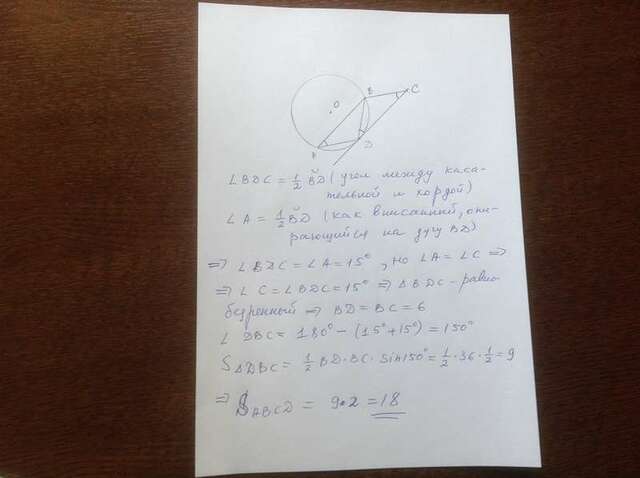 O
B
C
A
D
∠BDC = 1/2 B͝D (угол между каса-
тельной и хордой)
∠A = 1/2 B͝D (как вписанный, опи-
рающийся на дугу BD)
=> ∠BDC = ∠A = 15°, но ∠A = ∠C =>
=> ∠C = ∠BDC = 15° => △BDC - равно
бедренный => BD = BC = 6
∠DBC = 180° - (15° + 15°) = 150°
S△DBC = 1/2 BD · BC · sin150° = 1/2 · 36 · 1/2 = 9
=> SABCD = 9·2 = 18